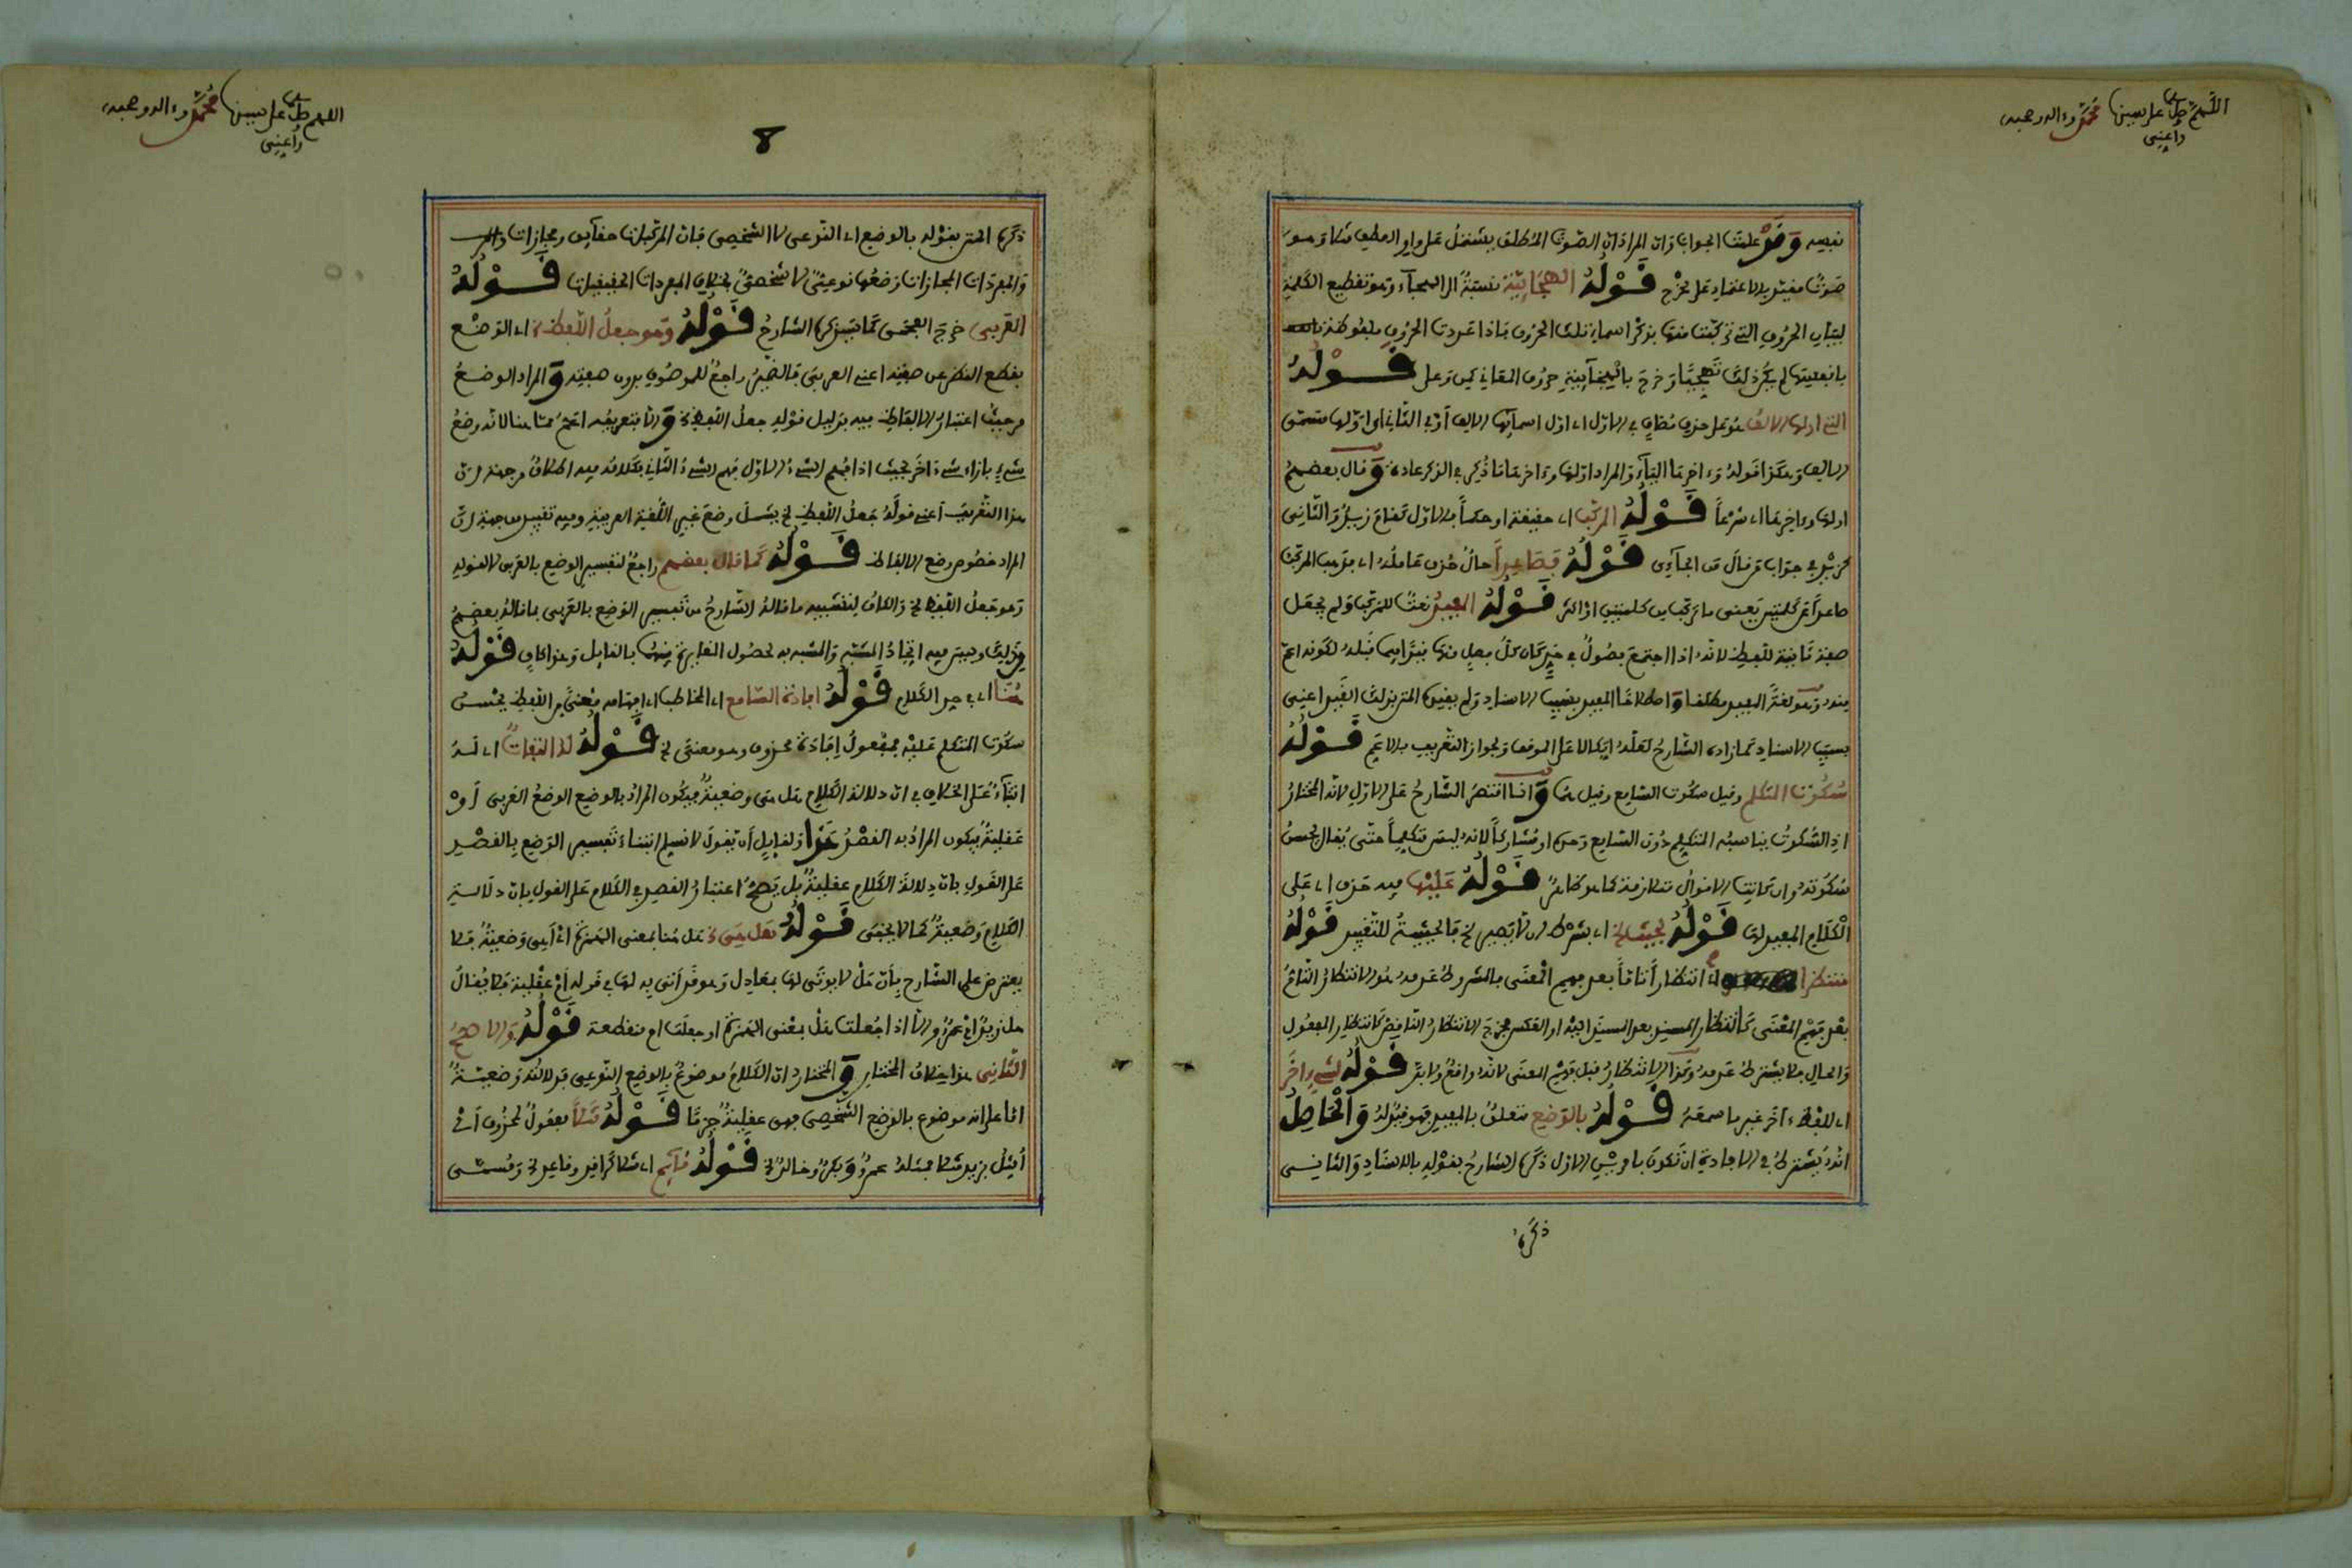 اللهم صل على نبينا محمد وءاله وصحبه
واعني
نفيه وقد علمت الجواب وان المراد ان الصوت المطلق يشتمل على واو العطف مثلا وهو
صوت مقيد بالاعتماد على مخرج قوله الهجائية نسبة الى الهجاء وهو تقطيع الكلمة
لبيان الحروف التي تركبت منها بذكر اسماء تلك الحروف فاذا عددت الحروف ملفوظة
بانفسها لم يكن ذلك تهجيا وخرج بالهجائية حروف المعاني كمن وعلى قوله
التي اولها الالف هو على حذف مضاف في الاول اي اول اسمائها الالف او في الثاني اي اولها مسمى
الالف وهكذا قوله وءاخرها الياء والمراد اولها وءاخرها ذكرا في الذكر عادة وقال بعضهم
اولها وءاخرها اي شرعا قوله المركب اي حقيقة او حكما فالاول كقام زيد والثاني
كزيد في جواب من قال من الجاءي قوله فصاعدا حال حذف عاملها اي فذهب المركب
صاعدا عن كلمتين يعني ما تركب من كلمتين او اكثر قوله المفيد نعت للمركب ولم يجعل
صفة ثانية للفظ لانه اذا اجتمع فصول في حد كان كل فصل منها قيدا فيما قبله لكونه اعم
منه وهو لغة المفيد مطلقا واصطلاحا المفيد بسبب الاسناد ولم يقيد المتن بذلك القيد اعني
بسبب الاسناد كما زاده الشارح لعله اتكالا على الموقف ولجواز التعريف بالاعم قوله
سكوت المتكلم وقيل سكوت السامع وقيل هما وانما اقتصر الشارح على الاول لانه المختار
اذ السكوت يناسبه المتكلم دون السامع وحده او مشاركا لانه ليس متكلما حتى يقال يحسن
سكوته وان كانت الاقوال متلازمة كما هو ظاهر قوله عليها فيه حذف اي على
الكلام المفيد لها قوله بحيث لا اي بشرط ان لا يصير الخ فالحيثية للتقييد قوله
منتظرا اي انتظارا تاما بعد فهم المعنى فالمشروط عدمه هو الانتظار التام
بعد فهم المعنى كانتظار المسند بعد المسند اليه او العكس فخرج الانتظار الناقص كانتظار المفعول
والحال فلا يشترط عدمه وكذا الانتظار قبل فهم المعنى لانه واقع ولابد قوله لشيء ءاخر
اي للفظ ءاخر غير ما سمعه قوله بالوضع متعلق بالمفيد فهو قيد له والحاصل
انه يشترط في الافادة ان تكون بامرين الاول ذكره الشارح بقوله بالاسناد والثاني
ذكره
اللهم صل على نبينا محمد وءاله وصحبه
واعني
8
ذكره المتن بقوله بالوضع اي النوعي لا الشخصي فان المركبات حقائق ومجازات
والمفردات المجازات وضعها نوعي لا شخصي بخلاف المفردات الحقيقيات قوله
العربي خرج العجمي كما سيذكره الشارح قوله وهو جعل اللفظ الخ اي الوضع
بقطع النظر عن صفته اعني العربي فالضمير راجع للموصوف بدون صفته والمراد الوضع
من حيث اعتبار الالفاظ فيه بدليل قوله جعل اللفظ الخ والا فتعريفه اعم مما هنا لانه وضع
شيء بازاء شيء ءاخر بحيث اذا فهم الشيء الاول فهم الشيء الثاني بكلامه فيه اطلاق من جهة ان
هذا التعريف اعني قوله جعل اللفظ الخ يشمل وضع غير اللغة العربية وفيه تقييد من جهة ان
المراد خصوص وضع الالفاظ قوله كما قال بعضهم راجع لتفسير الوضع بالعربي لا لقوله
وهو جعل اللفظ الخ والكاف لتشبيه ما قاله الشارح من تفسير الوضع بالعربي بما قاله بعضهم
من ذلك وليس فيه اتحاد المشبه والمشبه به لحصول المغايرة بينهما بالقائل وهو كاف قوله
هنا اي في حد الكلام قوله افادة السامع اي المخاطب اي افهامه معنى من اللفظ يحسن
سكوت المتكلم عليه فمفعول افادة محذوف وهو معنى الخ قوله له التفات اي له
ابتناء على الخلاف في ان دلالة الكلام هل هي وضعية فيكون المراد بالوضع الوضع العربي او
عقلية فيكون المراد به القصد هذا ولقائل ان يقول لا نسلم ابتناء تفسير الوضع بالقصد
على القول بان دلالة الكلام عقلية بل يصح اعتبار القصد في الكلام على القول بان دلالة
الكلام وضعية كما لا يخفى قوله هل هي الخ هل هنا بمعنى الهمزة اي اهي وضعية فلا
يعترض على الشارح بان هل لا يوتى لها بمعادل وهو قد اتى به لها في قوله ام عقلية فلا يقال
هل زيد ام عمرو الا اذا جعلت هل بمعنى الهمزة او جعلت ام منقطعة قوله والاصح
الثاني هذا خلاف المختار والمختار ان الكلام موضوع بالوضع النوعي فدلالته وضعية
اما على انه موضوع بالوضع الشخصي فهي عقلية جزما قوله مثلا مفعول لمحذوف اي
امثل بزيد مثلا فمثله عمرو وبكر وخالد الخ قوله قائم اي مثلا كراقد وقاعد الخ ومسمى